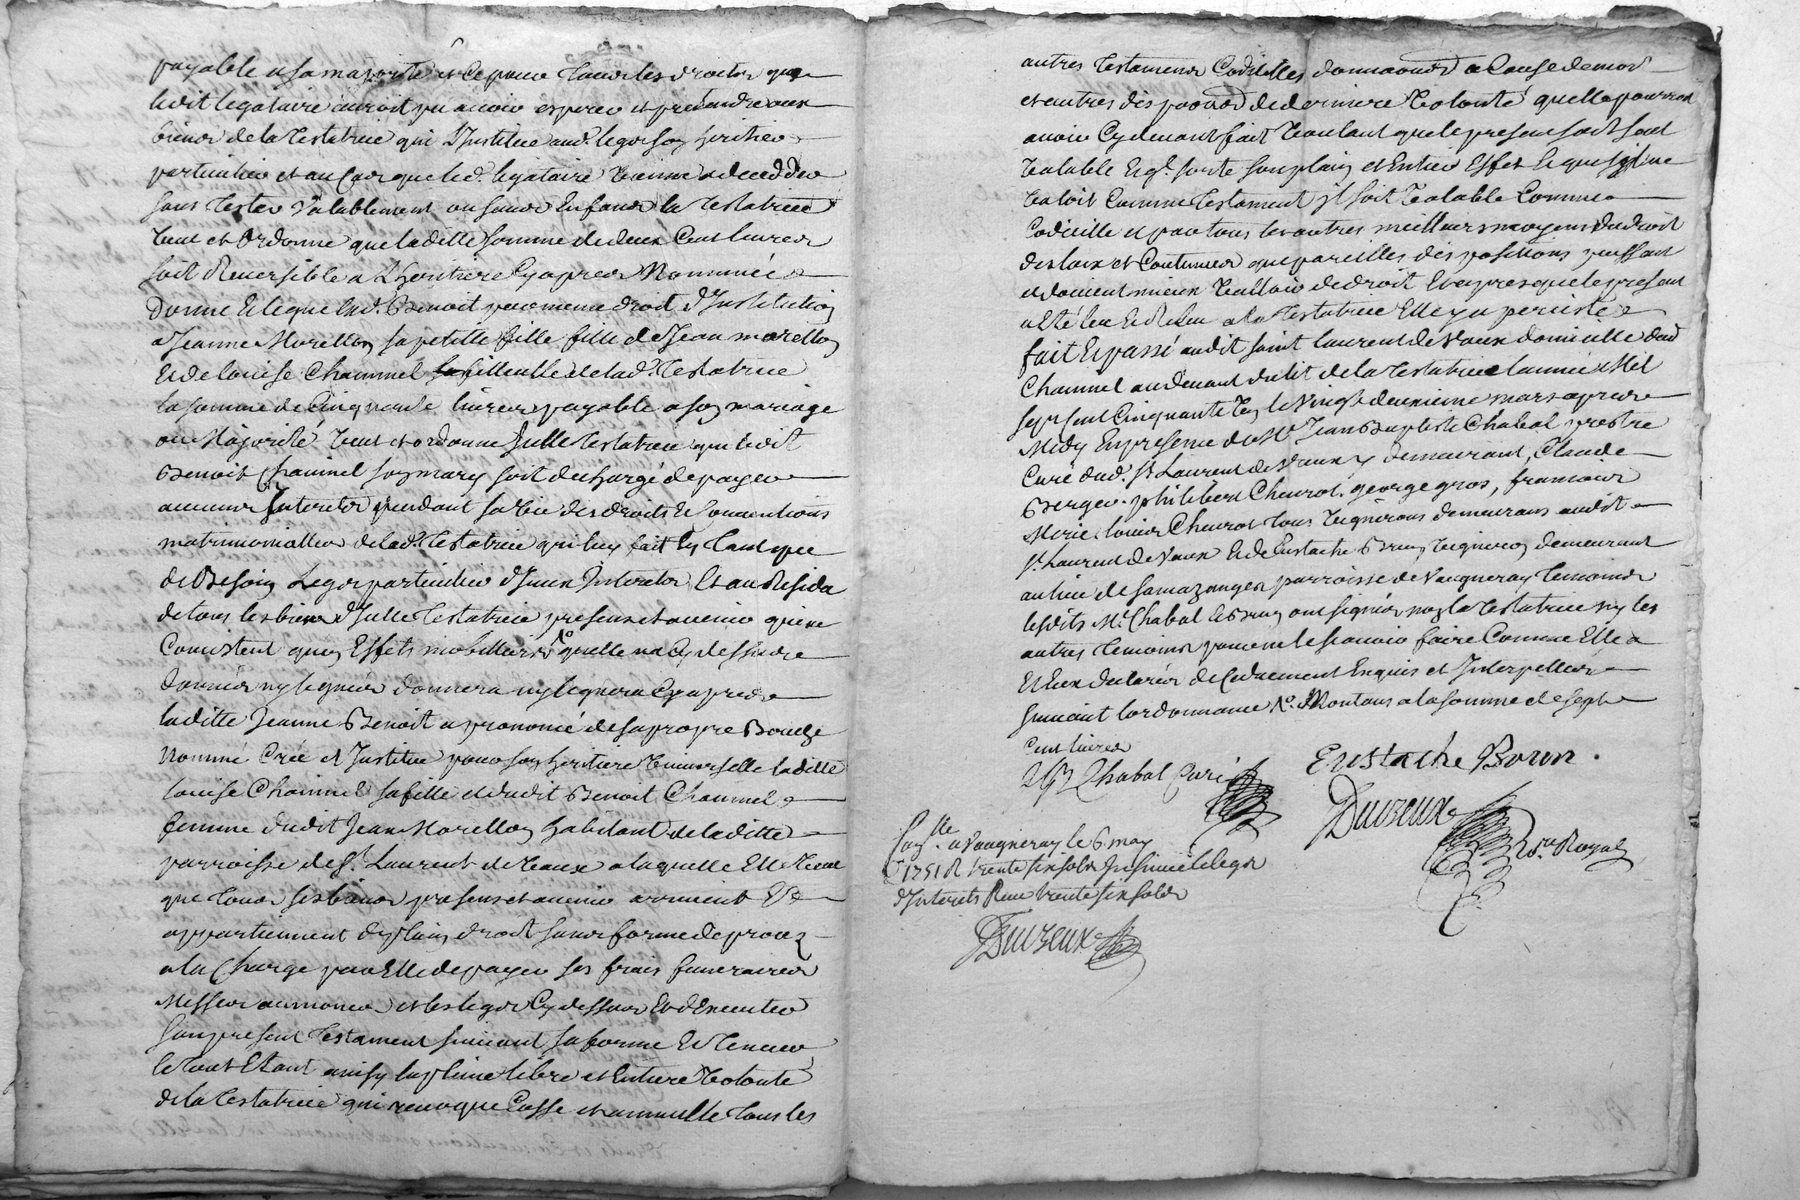 payable a sa majorité et ce pour tous les droits que
ledit legataire auroit pu avoir esperer et pretendre aux
biens de la testatrice qui l'institue aud. legs son heritier
particulier et au cas que led. legataire vienne a decedder
sans tester valablement ou sans enfans la testatrice
veut et ordonne que laditte somme de deux cent livres
soit reversible a l'heritiere cy apres nommée
donne et legue lad. Benoit par meme droit d'institution
a Jeanne Morellon sa petitte fille fille de Jean morellon
et de louise Chammel sa filleulle de lad. testatrice
la somme de cinquante livres payable a son mariage
ou majorité veut et ordonne icelle testatrice que ledit
Benoit Chammel son mary soit dechargé de payer
aucuns interets pendant sa vie des droits et conventions
matrimonialles de lad. testatrice qui luy fait en tant que
de besoin legs particulier d'iceux interets et au residu
de tous les biens d'icelle testatrice presens et avenir qui ne
consistent qu'en effets mobilliers quelle n'a cy dessus
donnés ny legués donnera ny leguera cy apres
laditte Jeanne Benoit a prononcé de sa propre bouche
nommé créé et institué pour son heritiere universelle laditte
louise Chammel sa fille et dudit Benoit Chammel
femme dudit Jean Morellon habitant de laditte
parroisse de St. Laurent de Vaux a laquelle elle veut
que tous ses biens presens et avenir arrivent et
appartiennent de plein droit sans forme de procez
a la charge par elle de payer ses frais funeraires
messes aumones et les legs cy dessus et d'executer
son present testament suivant sa forme et teneur
le tout etant ainsy la pleine libre et entiere volonté
de la testatrice qui revoque casse et annulle tous les
autres testamens codicilles donnaons a cause de mort
et autres dispoons de derniere volonté quelle pourroit
avoir cy devant fait voulant que le present soit seul
valable et ql. sorte son plein et entier effet et que s'il ne
valoit comme testament il soit valable comme
codicille et par tous les autres meilleurs moyens du droit
des loix et coutumes que pareilles dispositions puissent
et doivent mieux valloir de droit et apres que le present
a eté leu et releu a la testatrice elle y a persisté
fait et passé audit saint laurent de Vaux domicille dud
Chammel au devant du lit de la testatrice l'année mil
sept cent cinquante un le vingt deuxieme mars apres
midy en presence de Mr Jean Baptiste Chabal prestre
curé dud. St Laurent de Vaux y demeurant, Claude
Berger philibert Chevrot. george gros, francois
Meric louis Chevrot tous vignerons demeurans audit
St Laurent de Vaux et de Eustache Brun vigneron demeurant
au lieu de parroisse de Vaugneray temoins
lesdits Mr. Chabal et Brun ont signés non la testatrice ny les
autres temoins pour ne le scavoir faire comme elle
et eux declarés de ce deuement enquis et interpellés
suivant lordonnance Montans a la somme de sept
cent livres
Chabal Curé Eustache Brun.
Duvzeux no.re Royal
Con.lle a vaugneray le 6 may
1751 R trente six sols insinué le legs
d'interets Receu trente six sols
Duvzeux